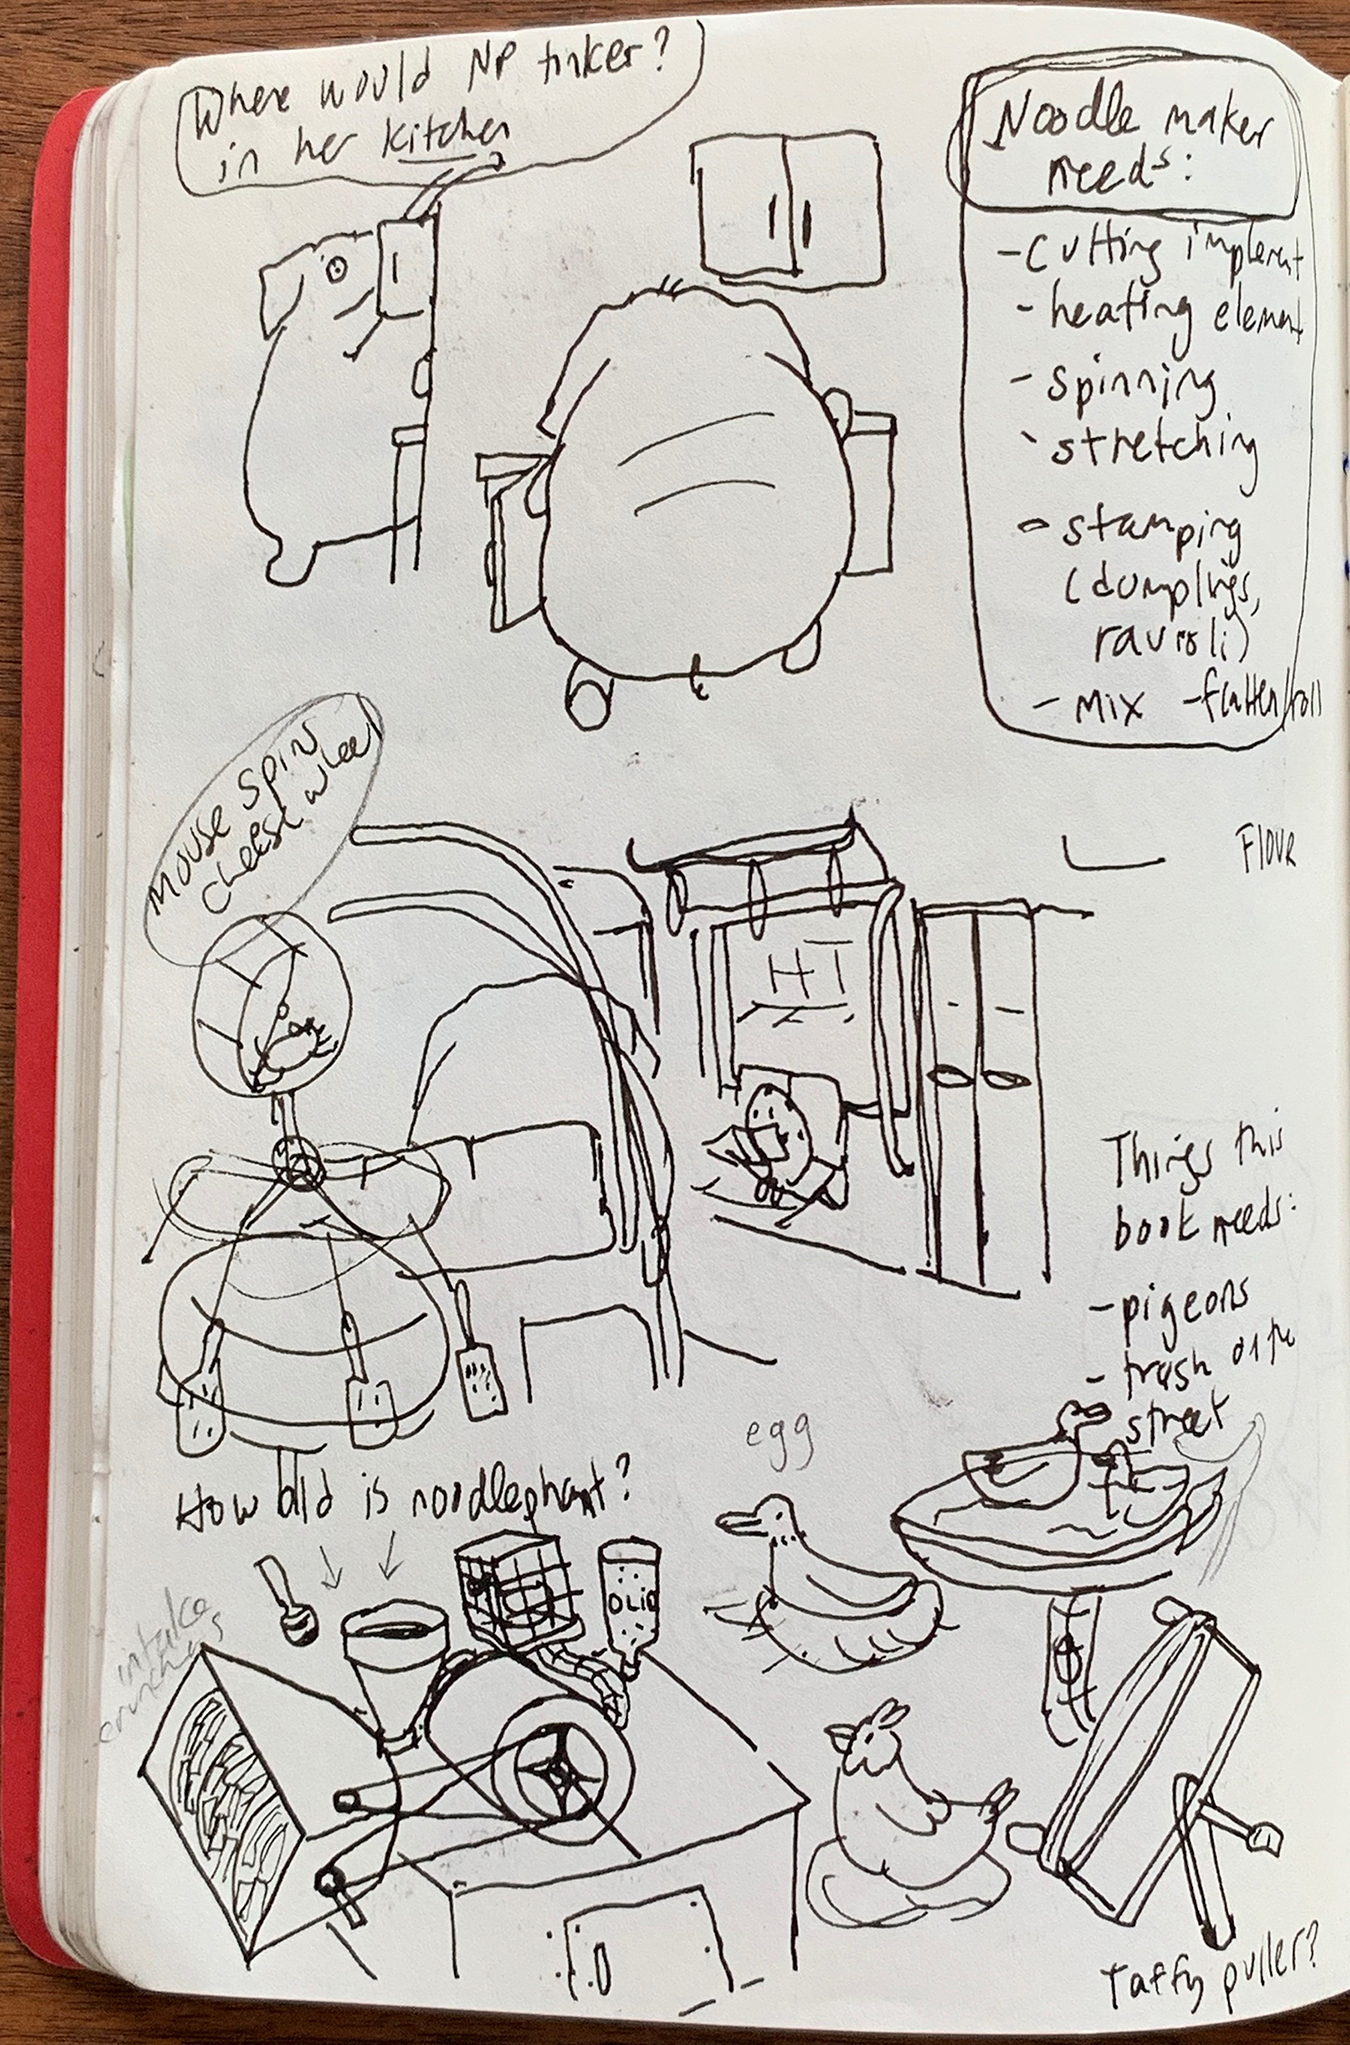 Where would NP tinker?
in her kitchen
Noodle maker
needs:
- cutting implement
- heating element
- spinning
- stretching
- stamping
(dumplings,
ravioli)
- mix - flatten/roll
Mouse spins
cheese wheel
HT
FLOUR
Things this
book needs:
- pigeons
- trash on the
street
egg
How old is noodlephant?
intake
crunches
OLIO
Taffy puller?